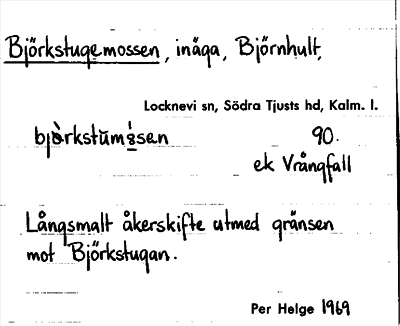 Björkstugemossen, inäga, Björnhult,
Locknevi sn, Södra Tjusts hd, Kalm. l.
bjòrkstŭmósen 90.
ek Vrångfall
Långsmalt åkerskifte utmed gränsen
mot Björkstugan.
Per Helge 1969